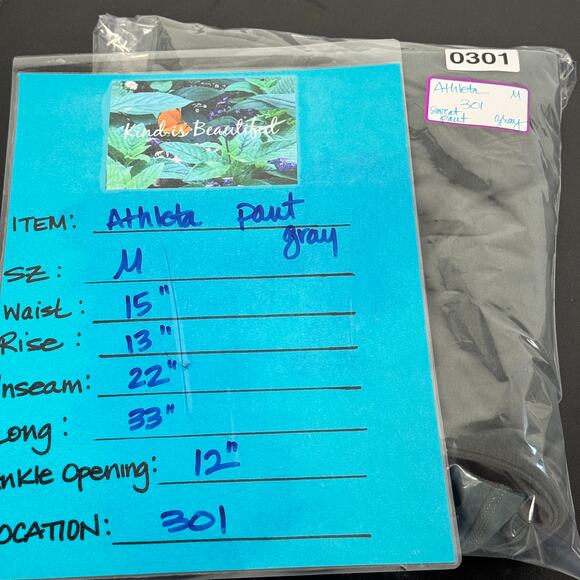 0301
Athleta M
301
Sweat pant gray
Kind is Beautiful
ITEM: Athleta pant
gray
SZ: M
Waist: 15"
Rise: 13"
nseam: 22"
Long: 33"
nkle Opening: 12"
OCATION: 301